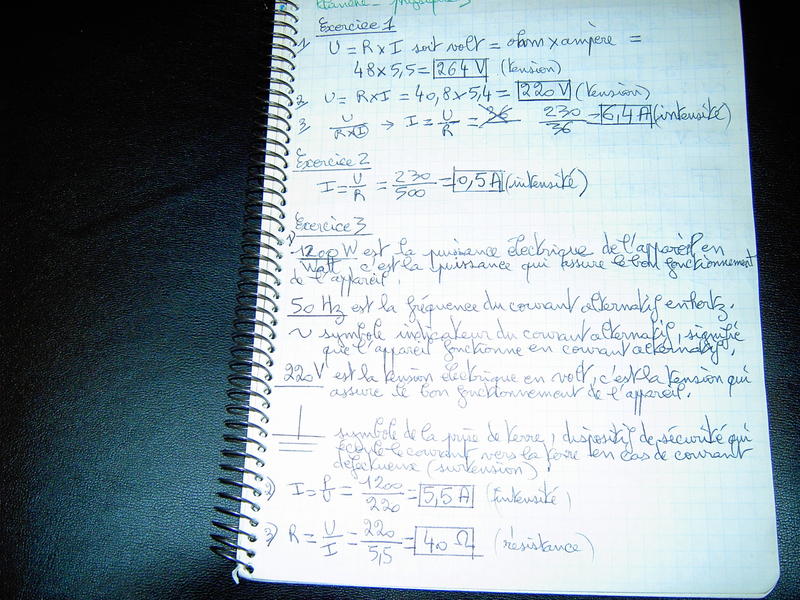 physique
Exercice 1
1) U = R x I soit volt = ohm x ampère =
48 x 5,5 = 264 V (tension)
2) U = R x I = 40,8 x 5,4 = 220 V (tension)
3) U/(R x I) → I = U/R = 36 230/36 = 6,4 A (intensité)
Exercice 2
I = U/R = 230/500 = 0,5 A (intensité)
Exercice 3
1) 1200 W est la puissance électrique de l'appareil en
Watt, c'est la puissance qui assure le bon fonctionnement
de l'appareil.
50 Hz est la fréquence du courant alternatif en hertz.
~ symbole indicateur du courant alternatif, signifie
que l'appareil fonctionne en courant alternatif.
220 V est la tension électrique en volt, c'est la tension qui
assure le bon fonctionnement de l'appareil.
symbole de la prise de terre, dispositif de sécurité qui
écoule le courant vers la terre en cas de courant
défectueux (surtension).
2) I = P/U = 1200/220 = 5,5 A (intensité)
3) R = U/I = 220/5,5 = 40 Ω (résistance)